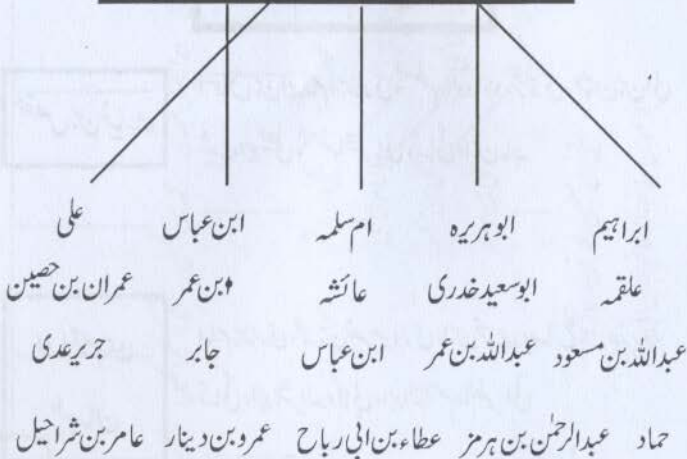 ابراہیم ابوہریرہ ام سلمہ ابن عباس علی
علقمہ ابوسعید خدری عائشہ ابن عمر عمران بن حصین
عبداللہ بن مسعود عبداللہ بن عمر ابن عباس جابر جریر عدی
حماد عبدالرحمٰن بن ہرمز عطاء بن ابی رباح عمرو بن دینار عامر بن شراحیل